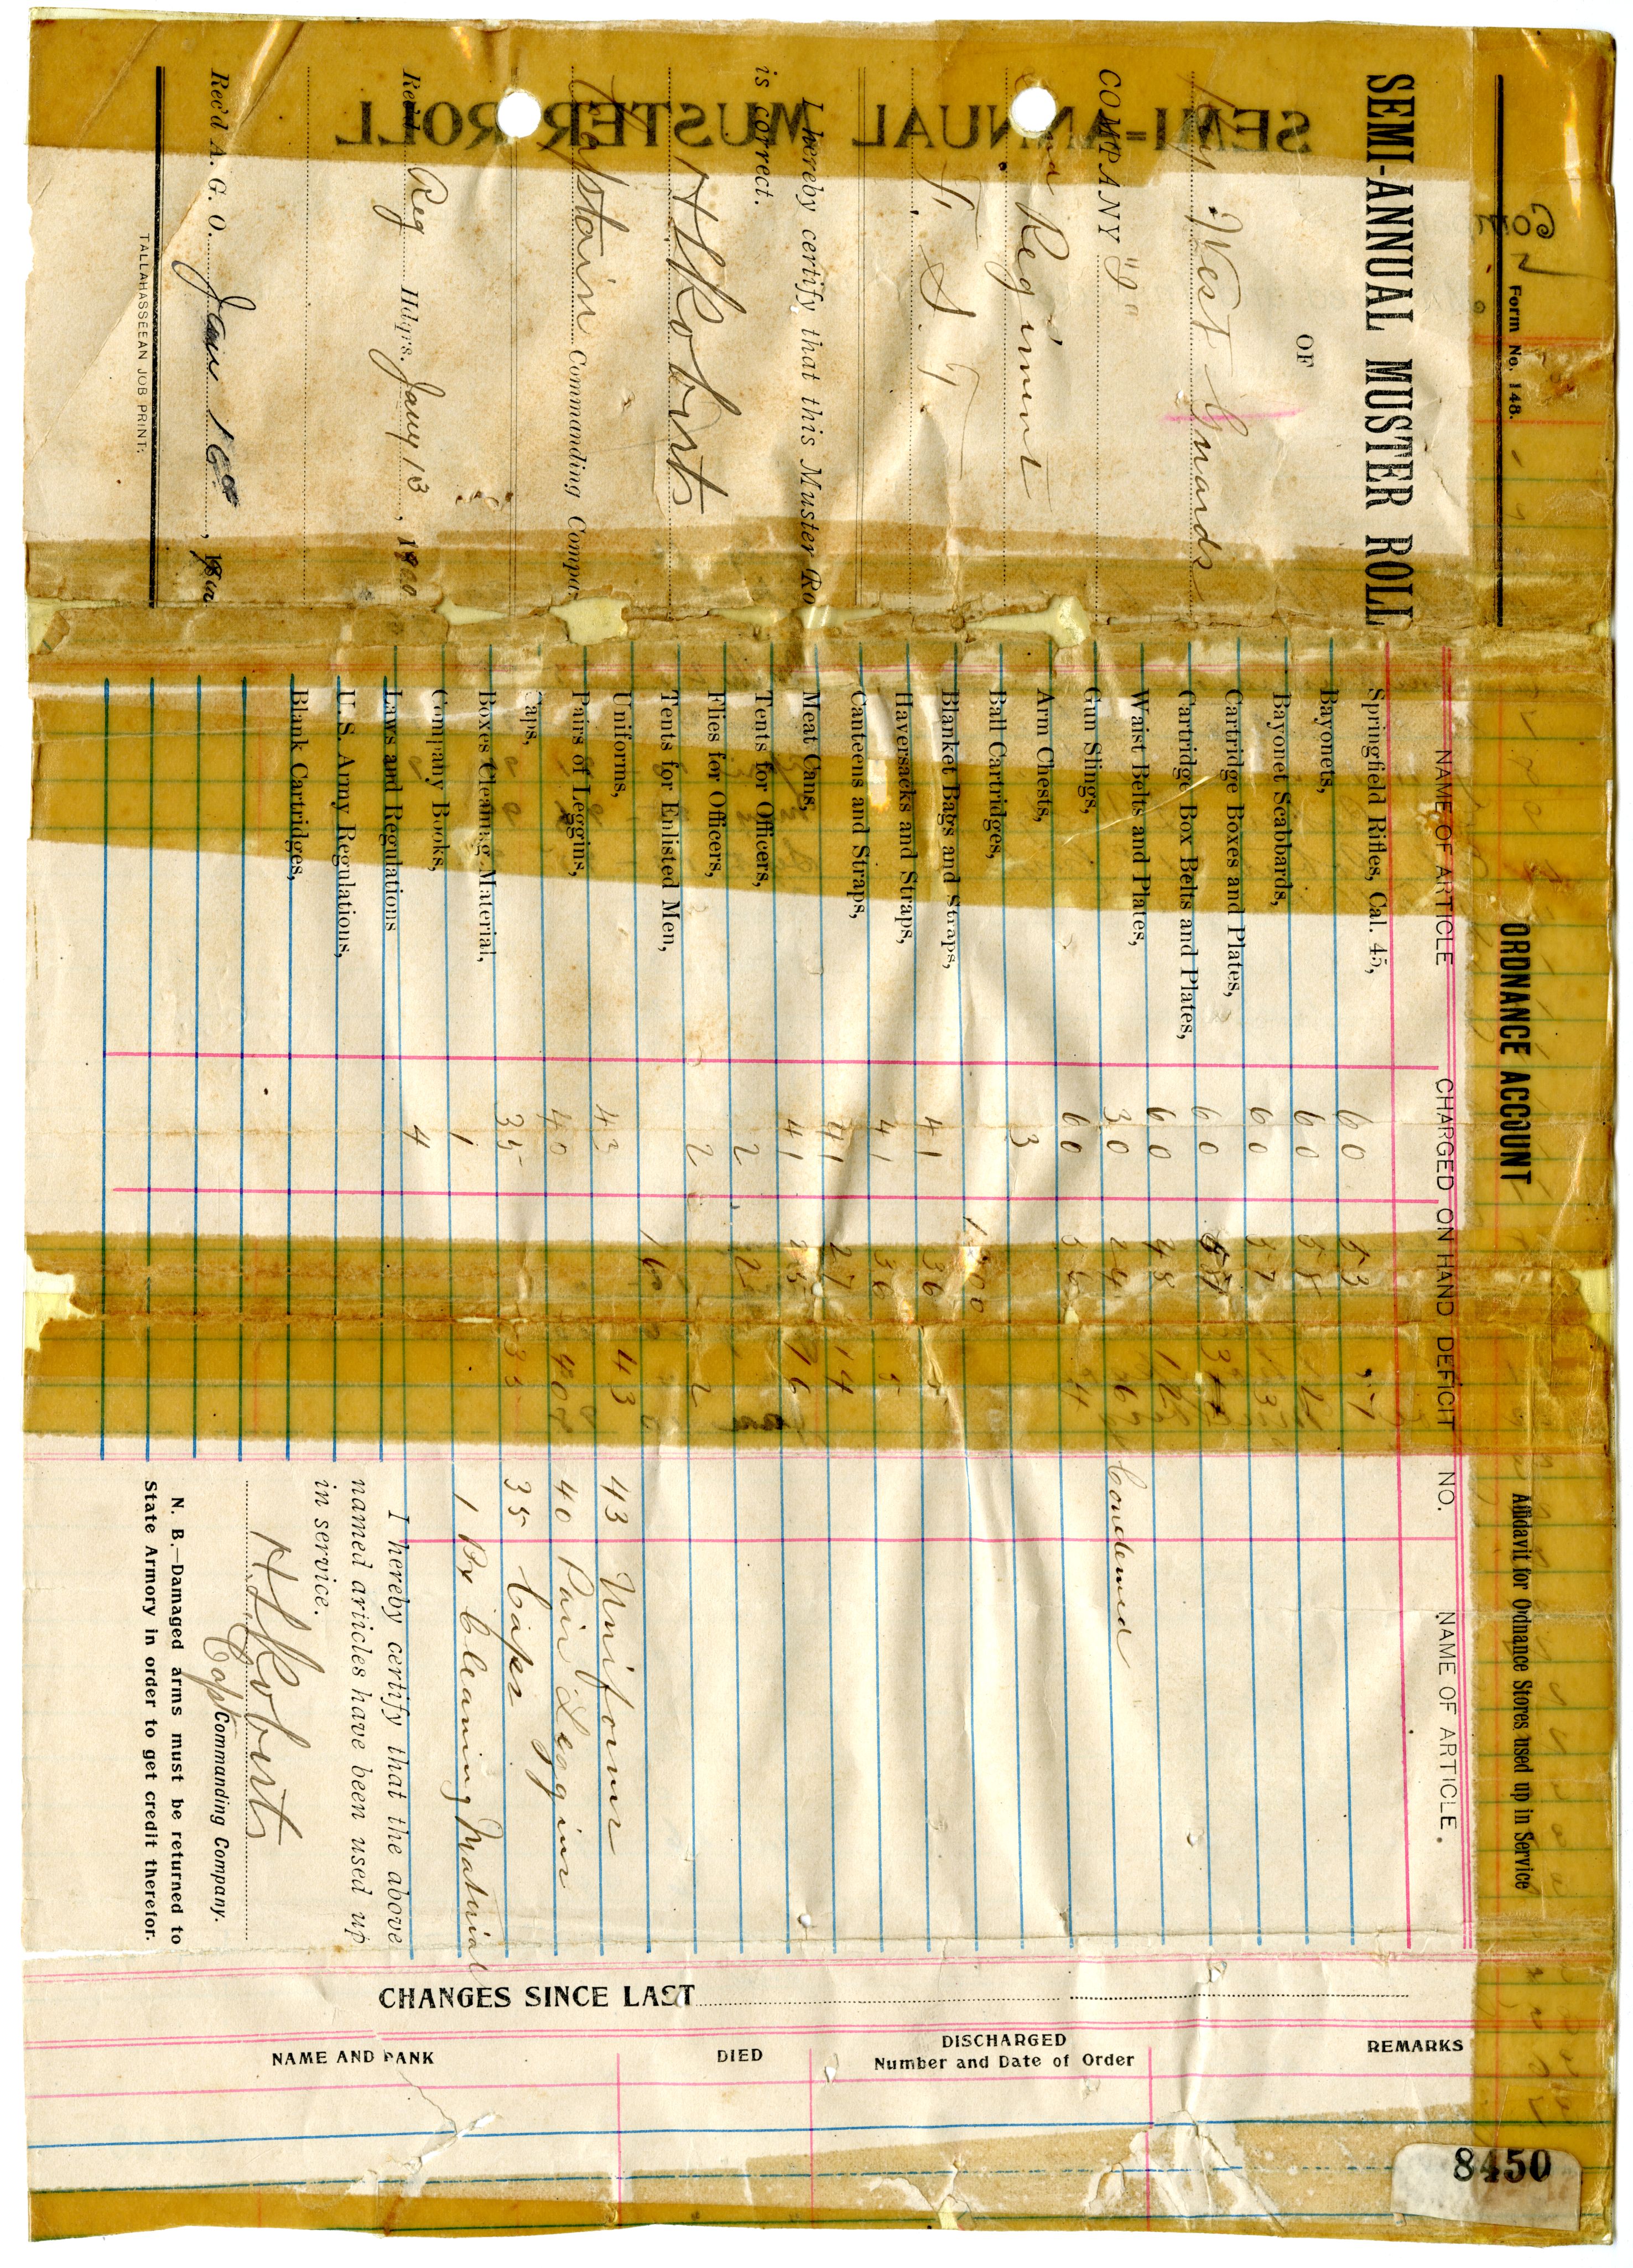 Form No. 148.
SEMI-ANNUAL MUSTER ROLL
OF
West Guards
COMPANY "I"
Regiment
F. S. T.
I hereby certify that this Muster Ro
is correct.
Roberts
Captain Commanding Compa
Rec'd Reg Hdqrs. Jany 13, 1900
Rec'd A. G. O. Jany 16
TALLAHASSEEAN JOB PRINT.
SEMI-ANNUAL MUSTER ROLL
ORDNANCE ACCOUNT
NAME OF ARTICLE CHARGED ON HAND DEFICIT
Springfield Rifles, Cal. 45, 60 53
Bayonets, 60 58
Bayonet Scabbards, 60 57 3
Cartridge Boxes and Plates, 60
Cartridge Box Belts and Plates, 60 48 12
Waist Belts and Plates, 30 24 6
Gun Slings, 60 56 4
Arm Chests, 3
Ball Cartridges,
Blanket Bags and Straps, 41 36 5
Haversacks and Straps, 41 36 5
Canteens and Straps, 41 27 14
Meat Cans, 41 25 16
Tents for Officers, 2 2
Flies for Officers, 2 2
Tents for Enlisted Men, 16
Uniforms, 43 43
Pairs of Leggins, 40 40
Caps, 35 35
Boxes Cleaning Material, 1
Company Books, 4
Laws and Regulations
U. S. Army Regulations,
Blank Cartridges,
Affidavit for Ordnance Stores used up in Service
NO. NAME OF ARTICLE.
Condemned
43 Uniforms
40 Pair Leggins
35 Caps
1 Bx Cleaning Material
I hereby certify that the above
named ariicles have been used up
in service.
Roberts
Capt Commanding Company.
N. B.—Damaged arms must be returned to
State Armory in order to get credit therefor.
CHANGES SINCE LAST
NAME AND RANK DIED DISCHARGED REMARKS
Number and Date of Order
8450